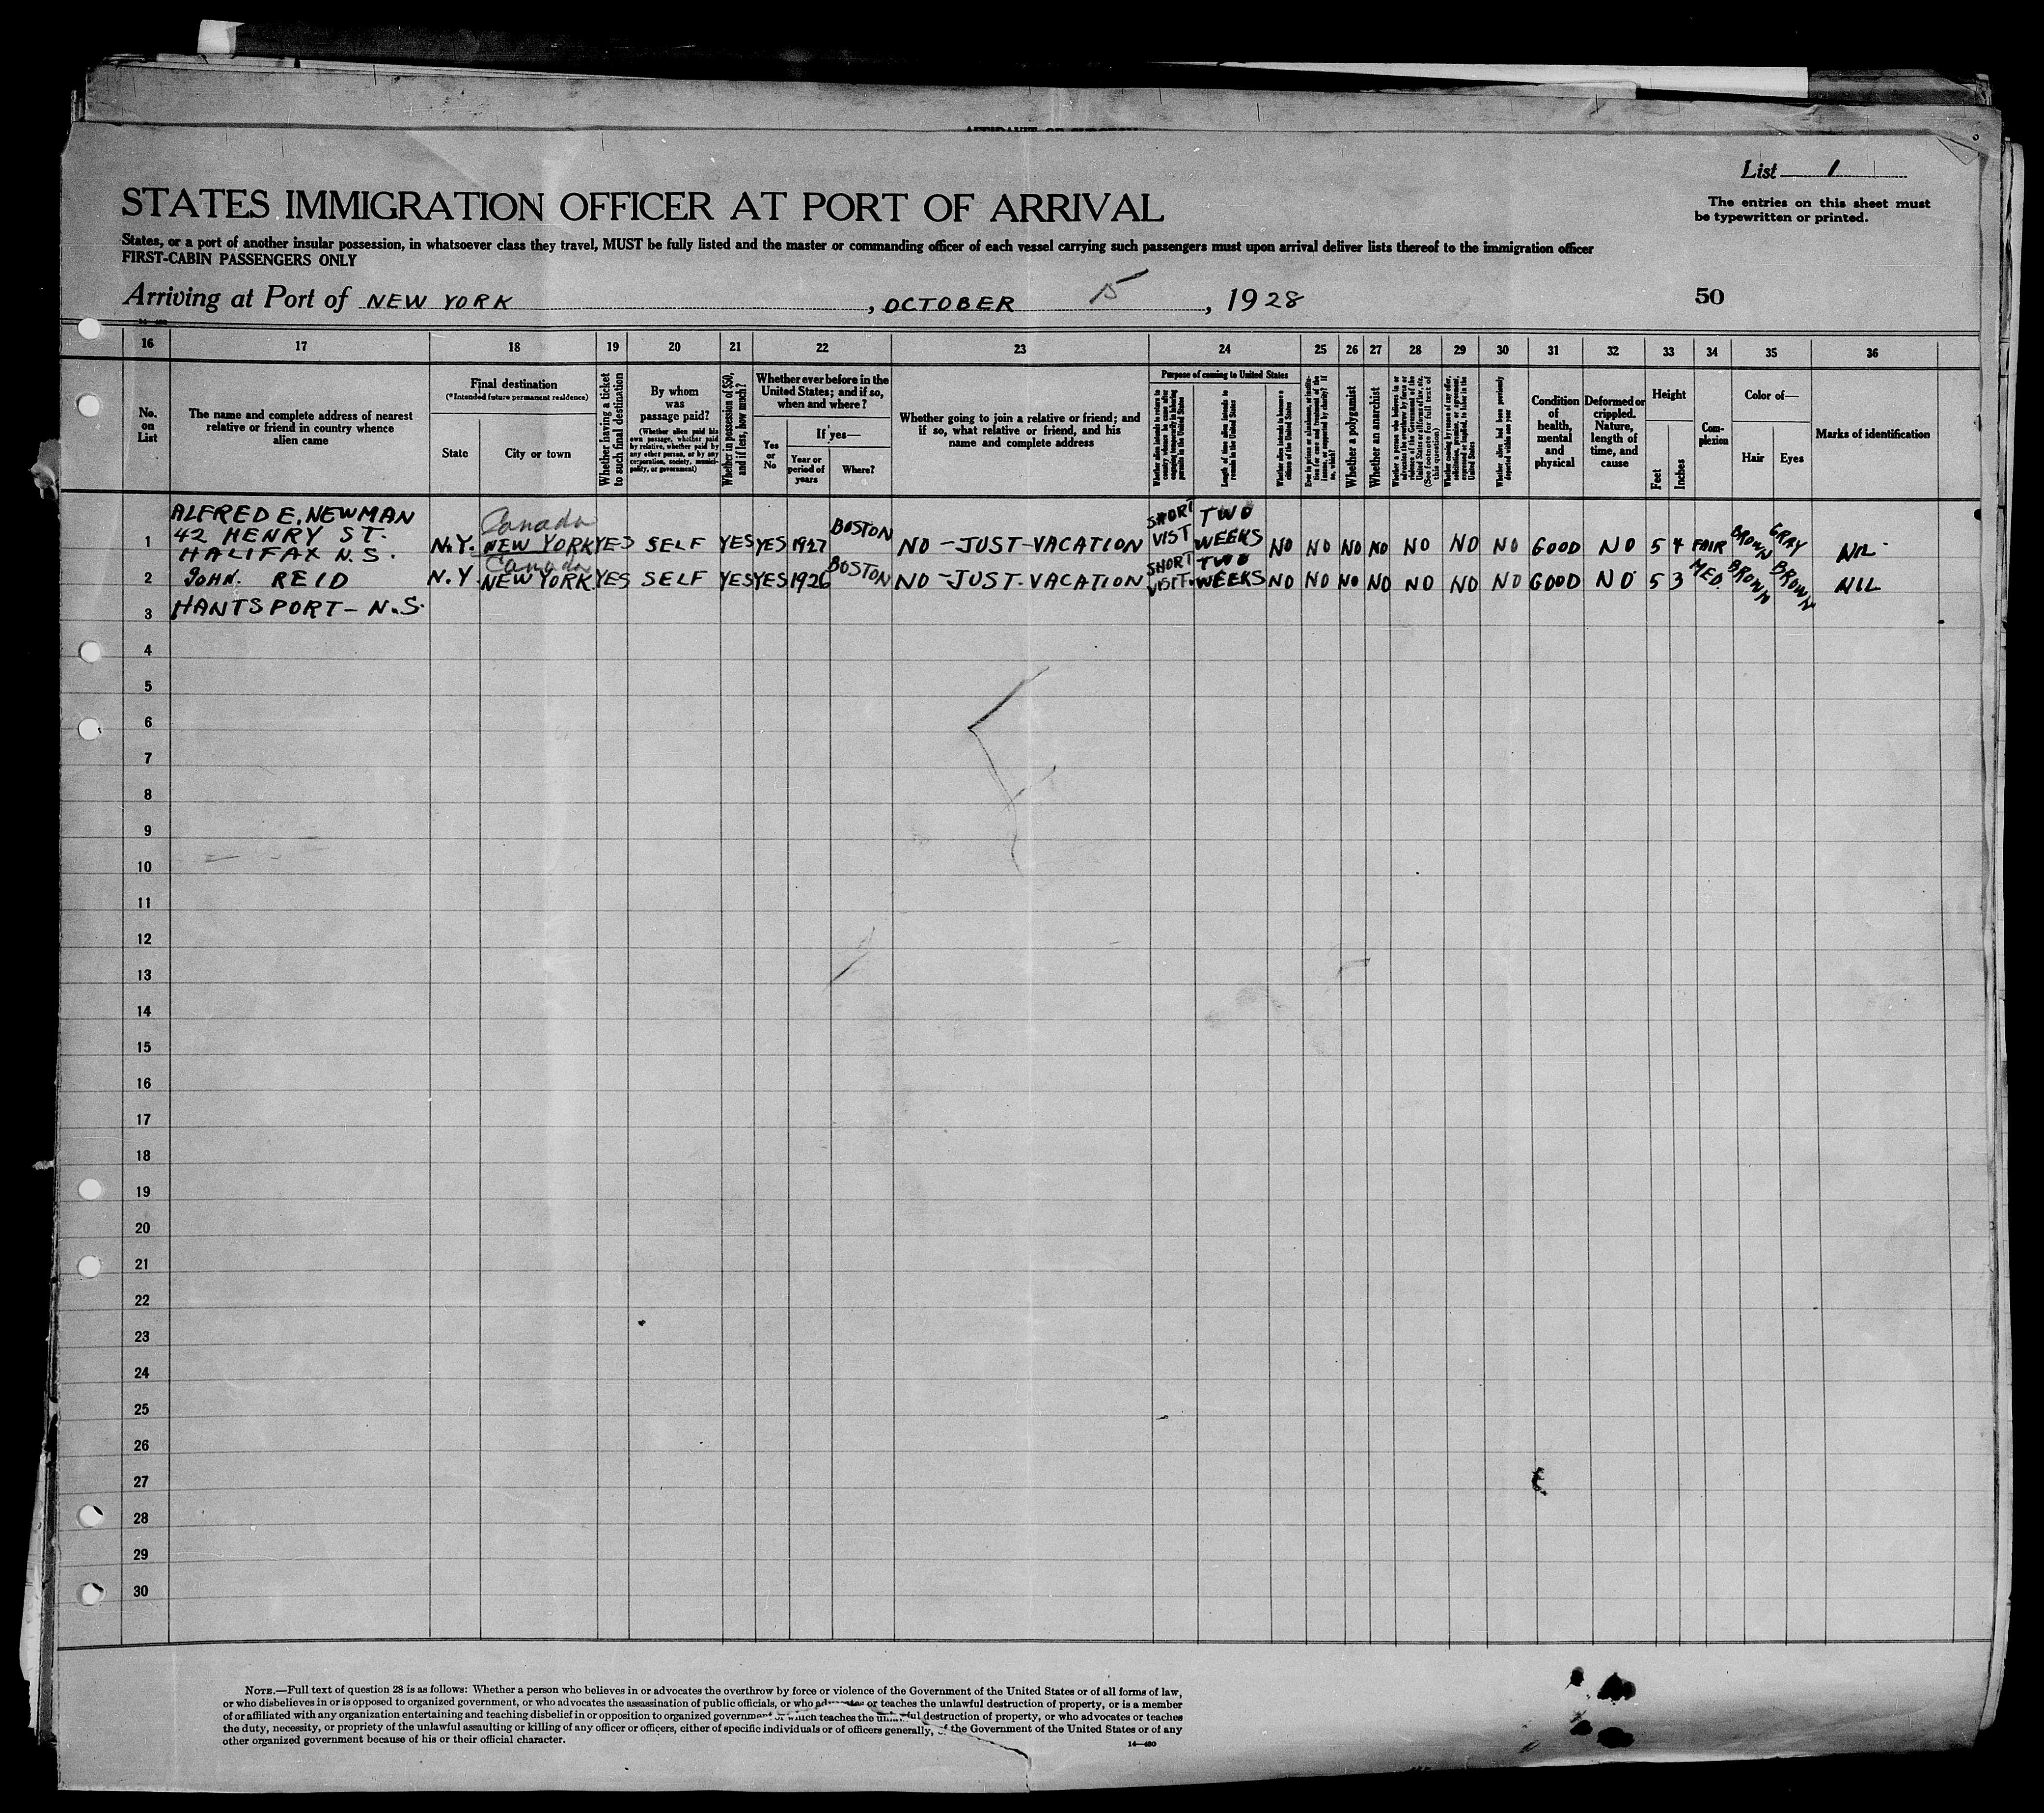 List 1
The entries on this sheet must
be typewritten or printed.
STATES IMMIGRATION OFFICER AT PORT OF ARRIVAL
States, or a port of another insular possession, in whatsoever class they travel, MUST be fully listed and the master or commanding officer of each vessel carrying such passengers must upon arrival deliver lists thereof to the immigration officer
FIRST-CABIN PASSENGERS ONLY
Arriving at Port of NEW YORK, OCTOBER 15, 1928 50
16 17 18 19 20 21 22 23 24 25 26 27 28 29 30 31 32 33 34 35 36
No.
on
List
The name and complete address of nearest
relative or friend in country whence
alien came
Final destination
(*Intended future permanent residence)
State
City or town
Whether having a ticket
to such final destination
By whom
was
passage paid?
(Whether alien paid his
own passage, whether paid
by relative, whether paid by
any other person, or by any
corporation, society, munici-
pality, or government)
Whether in possession of $50,
and if less, how much?
Whether ever before in the
United States; and if so,
when and where?
Yes
or
No
If yes—
Year or
period of
years
Where?
Whether going to join a relative or friend; and
if so, what relative or friend, and his
name and complete address
Purpose of coming to United States
Length of time alien intends to
remain in the United States
Whether alien intends to become a
citizen of the United States
Whether a polygamist
Whether an anarchist
(See footnote for full text of
this question)
Whether alien had been previously
deported within one year
Condition
of
health,
mental
and
physical
Deformed or
crippled.
Nature,
length of
time, and
cause
Height
Feet
Inches
Com-
plexion
Color of—
Hair
Eyes
Marks of identification
ALFRED E. NEWMAN
42 HENRY ST.
HALIFAX N.S.
1 N.Y. Canada NEW YORK YES SELF YES YES 1927 BOSTON NO - JUST - VACATION SHORT VIST TWO WEEKS NO NO NO NO NO NO NO GOOD NO 5 4 FAIR BROWN GRAY NIL
2 JOHN. REID N.Y. Canada NEW YORK YES SELF YES YES 1926 BOSTON NO - JUST - VACATION SHORT VISIT. TWO WEEKS NO NO NO NO NO NO NO GOOD NO 5 3 MED. BROWN BROWN NIL
3 HANTSPORT - N.S.
4
5
6
7
8
9
10
11
12
13
14
15
16
17
18
19
20
21
22
23
24
25
26
27
28
29
30
NOTE.—Full text of question 28 is as follows: Whether a person who believes in or advocates the overthrow by force or violence of the Government of the United States or of all forms of law,
or who disbelieves in or is opposed to organized government, or who advocates the assassination of public officials, or who advocates or teaches the unlawful destruction of property, or is a member
of or affiliated with any organization entertaining and teaching disbelief in or opposition to organized government or which teaches the unlawful destruction of property, or who advocates or teaches
the duty, necessity, or propriety of the unlawful assaulting or killing of any officer or officers, either of specific individuals or of officers generally, of the Government of the United States or of any
other organized government because of his or their official character.
14—480